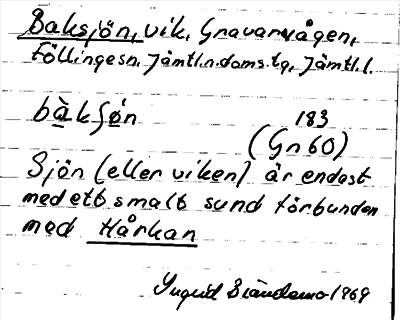 Baksjön, vik, Gravarvågen,
Föllinge sn, Jämtl. n. doms. tg, Jämtl. l.
bàkʃø̀n
183
(Gn 60)
Sjön (eller viken) är endast
med ett smalt sund förbunden
med Hårkan
Ingrid 1969